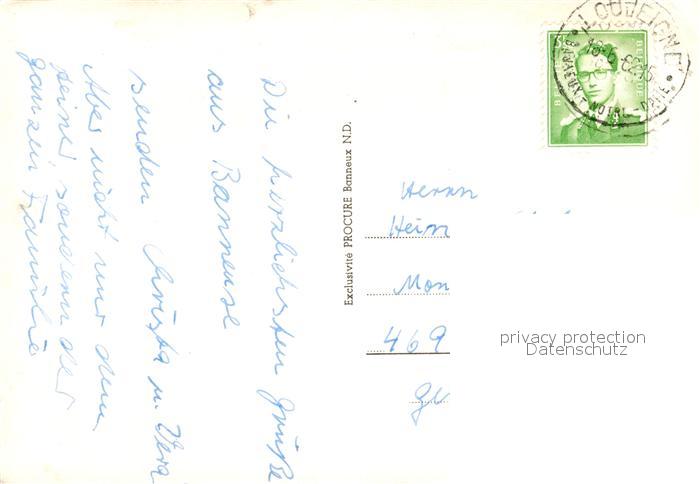 Die herzlichsten Grüße
aus Banneux
senden Christa u. Vera
Aber nicht nur dem
seiner sondern der
ganzen Familie
Exclusivité PROCURE Banneux N.D.
LOUVEIGNE
BANNEUX - NOTRE-DAME
Herrn
Hein
Mon
469
privacy protection
Datenschutz